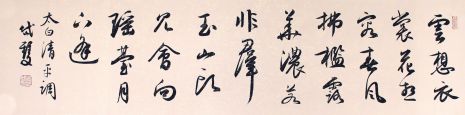 雲想衣
裳花想
容春風
拂檻露
華濃若
非羣
玉山頭
見會向
瑶臺月
下逢
太白清平調